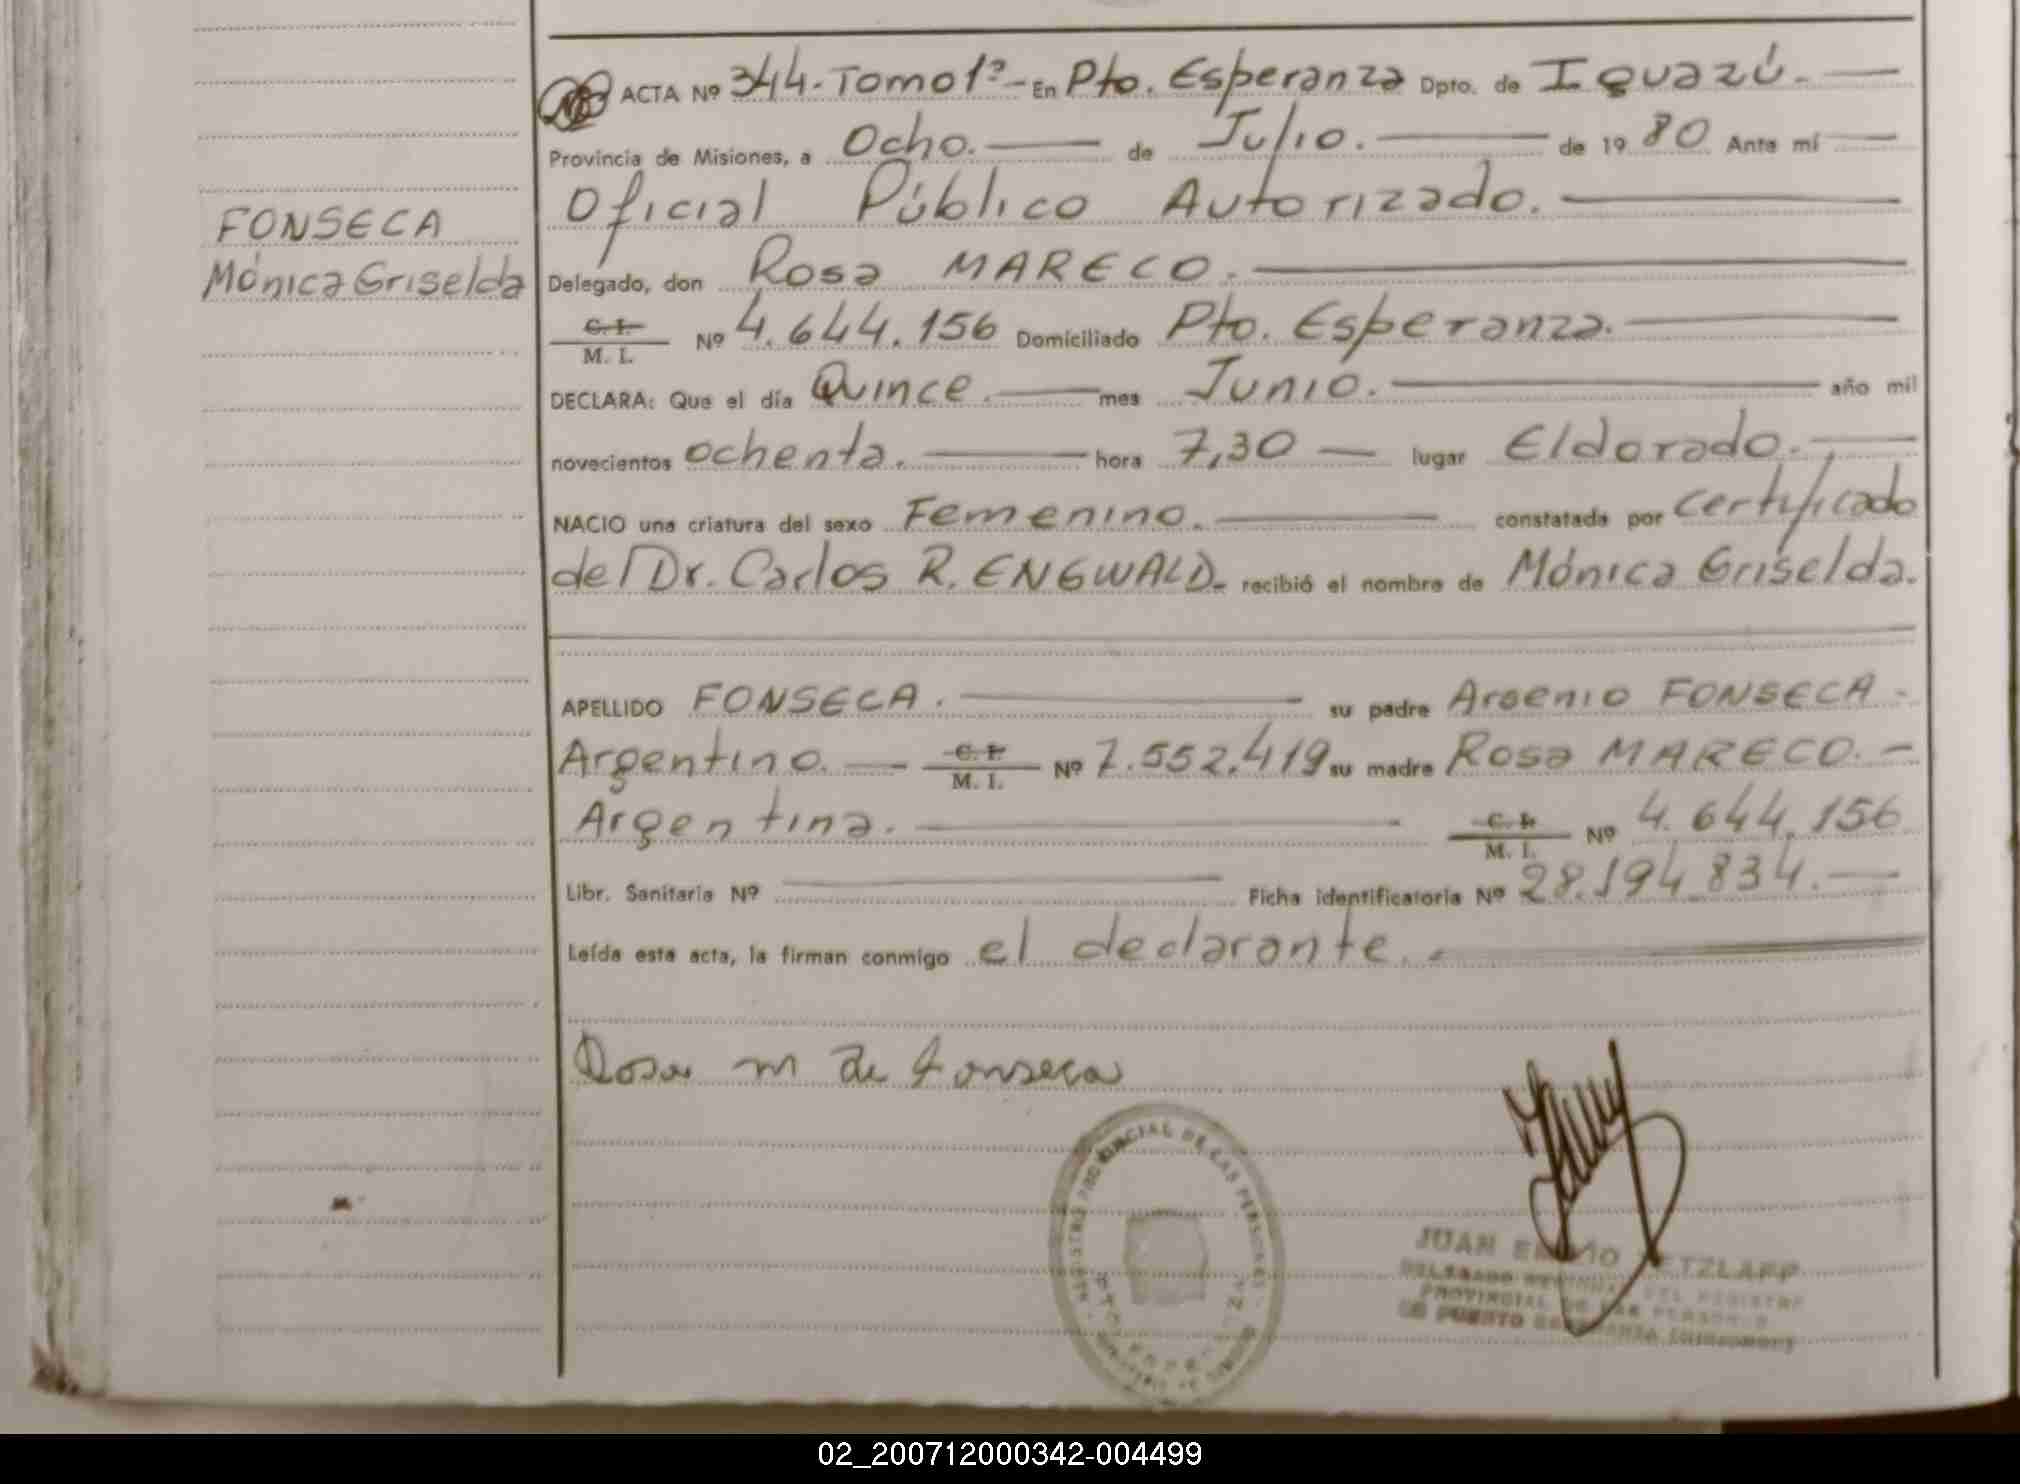 ACTA Nº 344. Tomo 1º - En Pto. Esperanza Dpto. de Iguazú.
Provincia de Misiones, a Ocho. de Julio. de 1980 Ante mí
FONSECA
Mónica Griselda
Oficial Público Autorizado.
Delegado, don Rosa MARECO.
C. I.
M. I. Nº 4.644.156 Domiciliado Pto. Esperanza.
DECLARA: Que el día Quince. mes Junio. año mil
novecientos ochenta. hora 7,30 lugar Eldorado.
NACIO una criatura del sexo Femenino. constatada por certificado
del Dr. Carlos R. ENGWALD. recibió el nombre de Mónica Griselda.
APELLIDO FONSECA. su padre Arsenio FONSECA.
Argentino. C. I. M. I. Nº 7.552.419 su madre Rosa MARECO.
Argentina. C. I. M. I. Nº 4.644.156
Libr. Sanitaria Nº Ficha identificatoria Nº 28.194.834.
Leída esta acta, la firman conmigo el declarante.
Rosa M de Fonseca
REGISTRO PROVINCIAL DE LAS PERSONAS
JUAN
DELEGADO DEL REGISTRO
PROVINCIAL DE LAS PERSONAS
PUERTO ESPERANZA (MISIONES)
02_200712000342-004499